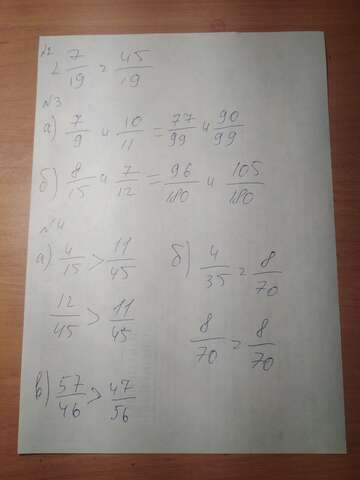 №2
2 7/19 = 45/19
№3
а) 7/9 и 10/11 = 77/99 и 90/99
б) 8/15 и 7/12 = 96/180 и 105/180
№4
а) 4/15 > 11/45
12/45 > 11/45
б) 4/35 = 8/70
8/70 = 8/70
в) 57/46 > 47/56